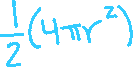 ½(4πr²)